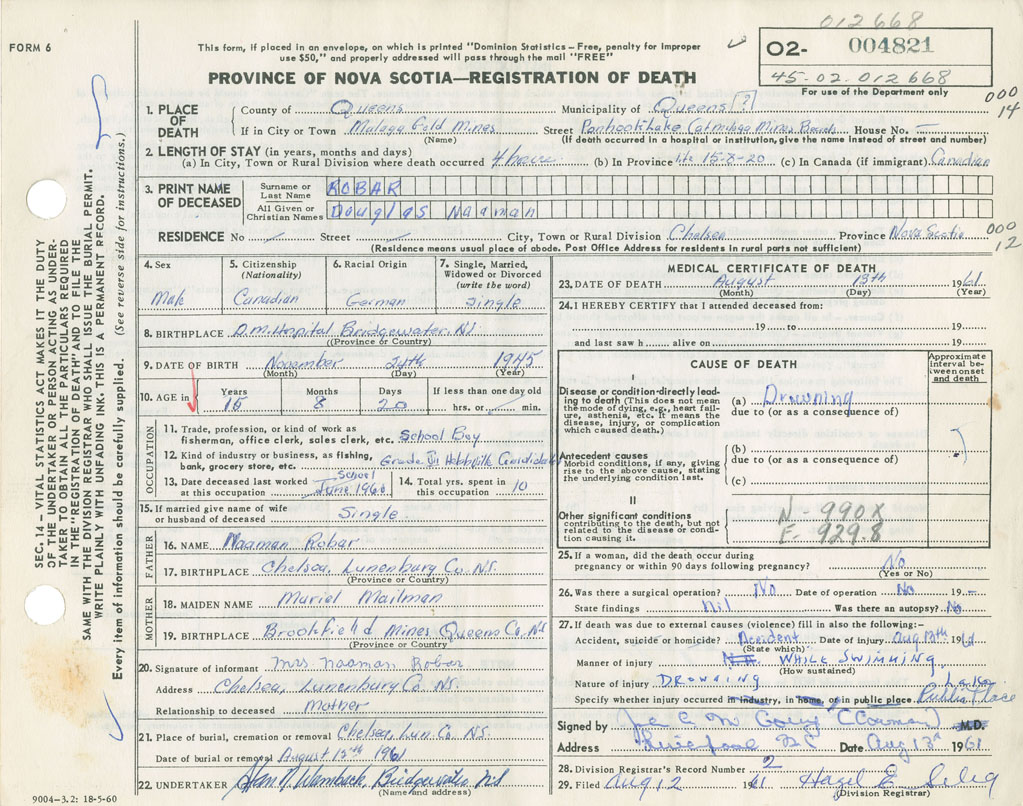 012668
FORM 6
This form, if placed in an envelope, on which is printed "Dominion Statistics – Free, penalty for improper
use $50," and properly addressed will pass through the mail "FREE"
O2- 004821
45-02-012668
For use of the Department only
PROVINCE OF NOVA SCOTIA—REGISTRATION OF DEATH
000
14
1. PLACE OF DEATH
County of Queens Municipality of Queens [?]
If in City or Town Malaga Gold Mines Street House No. –
(Name) (If death occurred in a hospital or institution, give the name instead of street and number)
2. LENGTH OF STAY (in years, months and days)
(a) In City, Town or Rural Division where death occurred 4 hours (b) In Province life 15-8-20 (c) In Canada (if immigrant) Canadian
3. PRINT NAME OF DECEASED
Surname or Last Name ROBAR
All Given or Christian Names Douglas Naaman
RESIDENCE No — Street — City, Town or Rural Division Chelsea Province Nova Scotia
000
12
(Residence means usual place of abode. Post Office Address for residents in rural parts not sufficient)
4. Sex
Male
5. Citizenship
(Nationality)
Canadian
6. Racial Origin
German
7. Single, Married,
Widowed or Divorced
(write the word)
Single
8. BIRTHPLACE D.M. Hospital Bridgewater N.S.
(Province or Country)
9. DATE OF BIRTH November 24th 1945
(Month) (Day) (Year)
10. AGE in
Years Months Days If less than one day old
15 8 20 hrs. or min.
OCCUPATION
11. Trade, profession, or kind of work as
fisherman, office clerk, sales clerk, etc. School Boy
12. Kind of industry or business, as fishing,
bank, grocery store, etc. Grade VI Hebbville
13. Date deceased last worked
at this occupation School June 1960
14. Total yrs. spent in
this occupation 10
15. If married give name of wife
or husband of deceased Single
FATHER
16. NAME Naaman Robar
17. BIRTHPLACE Chelsea, Lunenburg Co. N.S.
(Province or Country)
MOTHER
18. MAIDEN NAME Muriel Mailman
19. BIRTHPLACE Brookfield Mines Queens Co. N.S
(Province or Country)
20. Signature of informant Mrs Naaman Robar
Address Chelsea, Lunenburg Co. N.S.
Relationship to deceased Mother
21. Place of burial, cremation or removal Chelsea, Lun. Co. N.S.
Date of burial or removal August 15th 1961
22. UNDERTAKER Wamback Bridgewater N.S
(Name and address)
MEDICAL CERTIFICATE OF DEATH
23. DATE OF DEATH August 13th 1961
(Month) (Day) (Year)
24. I HEREBY CERTIFY that I attended deceased from:
19 to 19
and last saw h alive on 19
CAUSE OF DEATH
Approximate
interval be-
tween onset
and death
I
Disease or condition directly lead-
ing to death (This does not mean
the mode of dying, e.g., heart fail-
ure, asthenia, etc. It means the
disease, injury, or complication
which caused death.)
(a) Drowning
due to (or as a consequence of)
Antecedent causes
Morbid conditions, if any, giving
rise to the above cause, stating
the underlying condition last.
(b)
due to (or as a consequence of)
(c)
II
Other significant conditions
contributing to the death, but not
related to the disease or condi-
tion causing it.
N - 990X
E - 929.8
25. If a woman, did the death occur during
pregnancy or within 90 days following pregnancy? No
(Yes or No)
26. Was there a surgical operation? No Date of operation No 19 –
State findings Nil Was there an autopsy? No
27. If death was due to external causes (violence) fill in also the following:–
Accident, suicide or homicide? Accident Date of injury Aug 1961
(State which)
Manner of injury WHILE SWIMMING
(How sustained)
Nature of injury DROWNING Lake
Specify whether injury occurred in industry, in home, or in public place. Public Place
Signed by (Coroner) M.D.
Address Date Aug 13th 1961
28. Division Registrar's Record Number 2
29. Filed Aug 12 1961 Hazel E.
(Division Registrar)
SEC. 14 – VITAL STATISTICS ACT MAKES IT THE DUTY
OF THE UNDERTAKER OR PERSON ACTING AS UNDER-
TAKER TO OBTAIN ALL THE PARTICULARS REQUIRED
IN THE "REGISTRATION OF DEATH" AND TO FILE THE
SAME WITH THE DIVISION REGISTRAR WHO SHALL ISSUE THE BURIAL PERMIT.
WRITE PLAINLY WITH UNFADING INK. THIS IS A PERMANENT RECORD.
Every item of information should be carefully supplied. (See reverse side for instructions.)
9004–3.2: 18-5-60